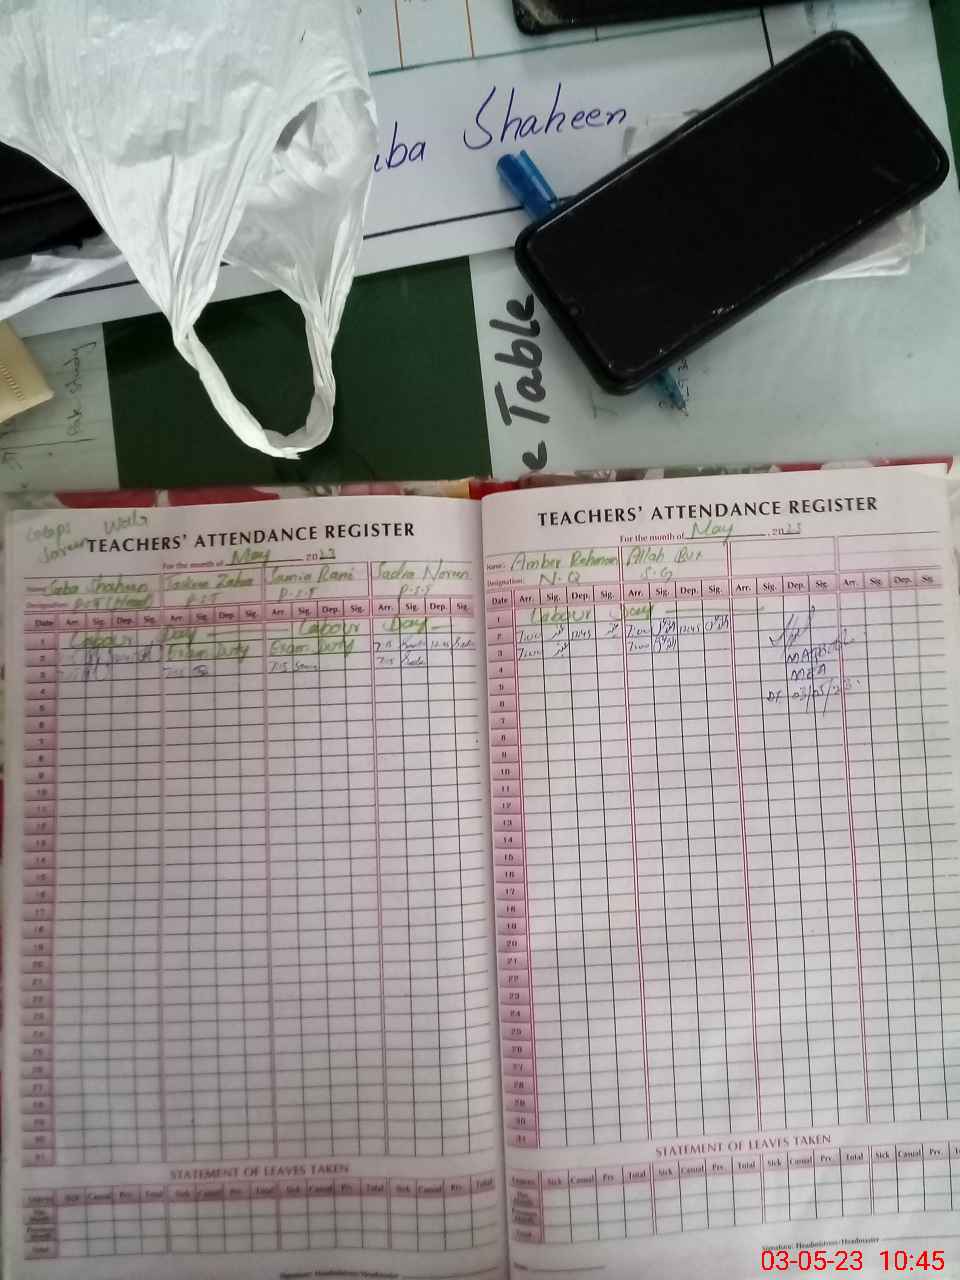 Shaheen
e Table
Pak study
TEACHERS' ATTENDANCE REGISTER
For the month of May, 2023
Name: Saba Shaheen Samia Rani Sadia Noreen
Designation: P.S.T (Head) P.S.T P.S.T P.S.T
Date Arr. Sig. Dep. Sig. Arr. Sig. Dep. Sig. Arr. Sig. Dep. Sig. Arr. Sig. Dep. Sig.
1 Labour Day Labour Day
2 Exam Duty Exam Duty 7:15 12:45
3 7:15 7:15
4
5
6
7
8
9
10
11
12
13
14
15
16
17
18
19
20
21
22
23
24
25
26
27
28
29
30
31
STATEMENT OF LEAVES TAKEN
Leaves Sick Casual Prv. Total Sick Casual Prv. Total Sick Casual Prv. Total Sick Casual Prv. Total
Total
Signature: Headmistress/Headmaster
TEACHERS' ATTENDANCE REGISTER
For the month of May, 2023
Name: Amber Rehman Allah Bux
Designation: N.Q S.G
Date Arr. Sig. Dep. Sig. Arr. Sig. Dep. Sig. Arr. Sig. Dep. Sig. Arr. Sig. Dep. Sig.
1 Labour Day
2 7:00 12:45 7:00 12:45
3 7:00 7:00
4 MEA
5 Dt 03/05/23
6
7
8
9
10
11
12
13
14
15
16
17
18
19
20
21
22
23
24
25
26
27
28
29
30
31
STATEMENT OF LEAVES TAKEN
Leaves Sick Casual Prv. Total Sick Casual Prv. Total Sick Casual Prv. Total Sick Casual Prv.
Total
Signature: Headmistress/Headmaster
03-05-23 10:45